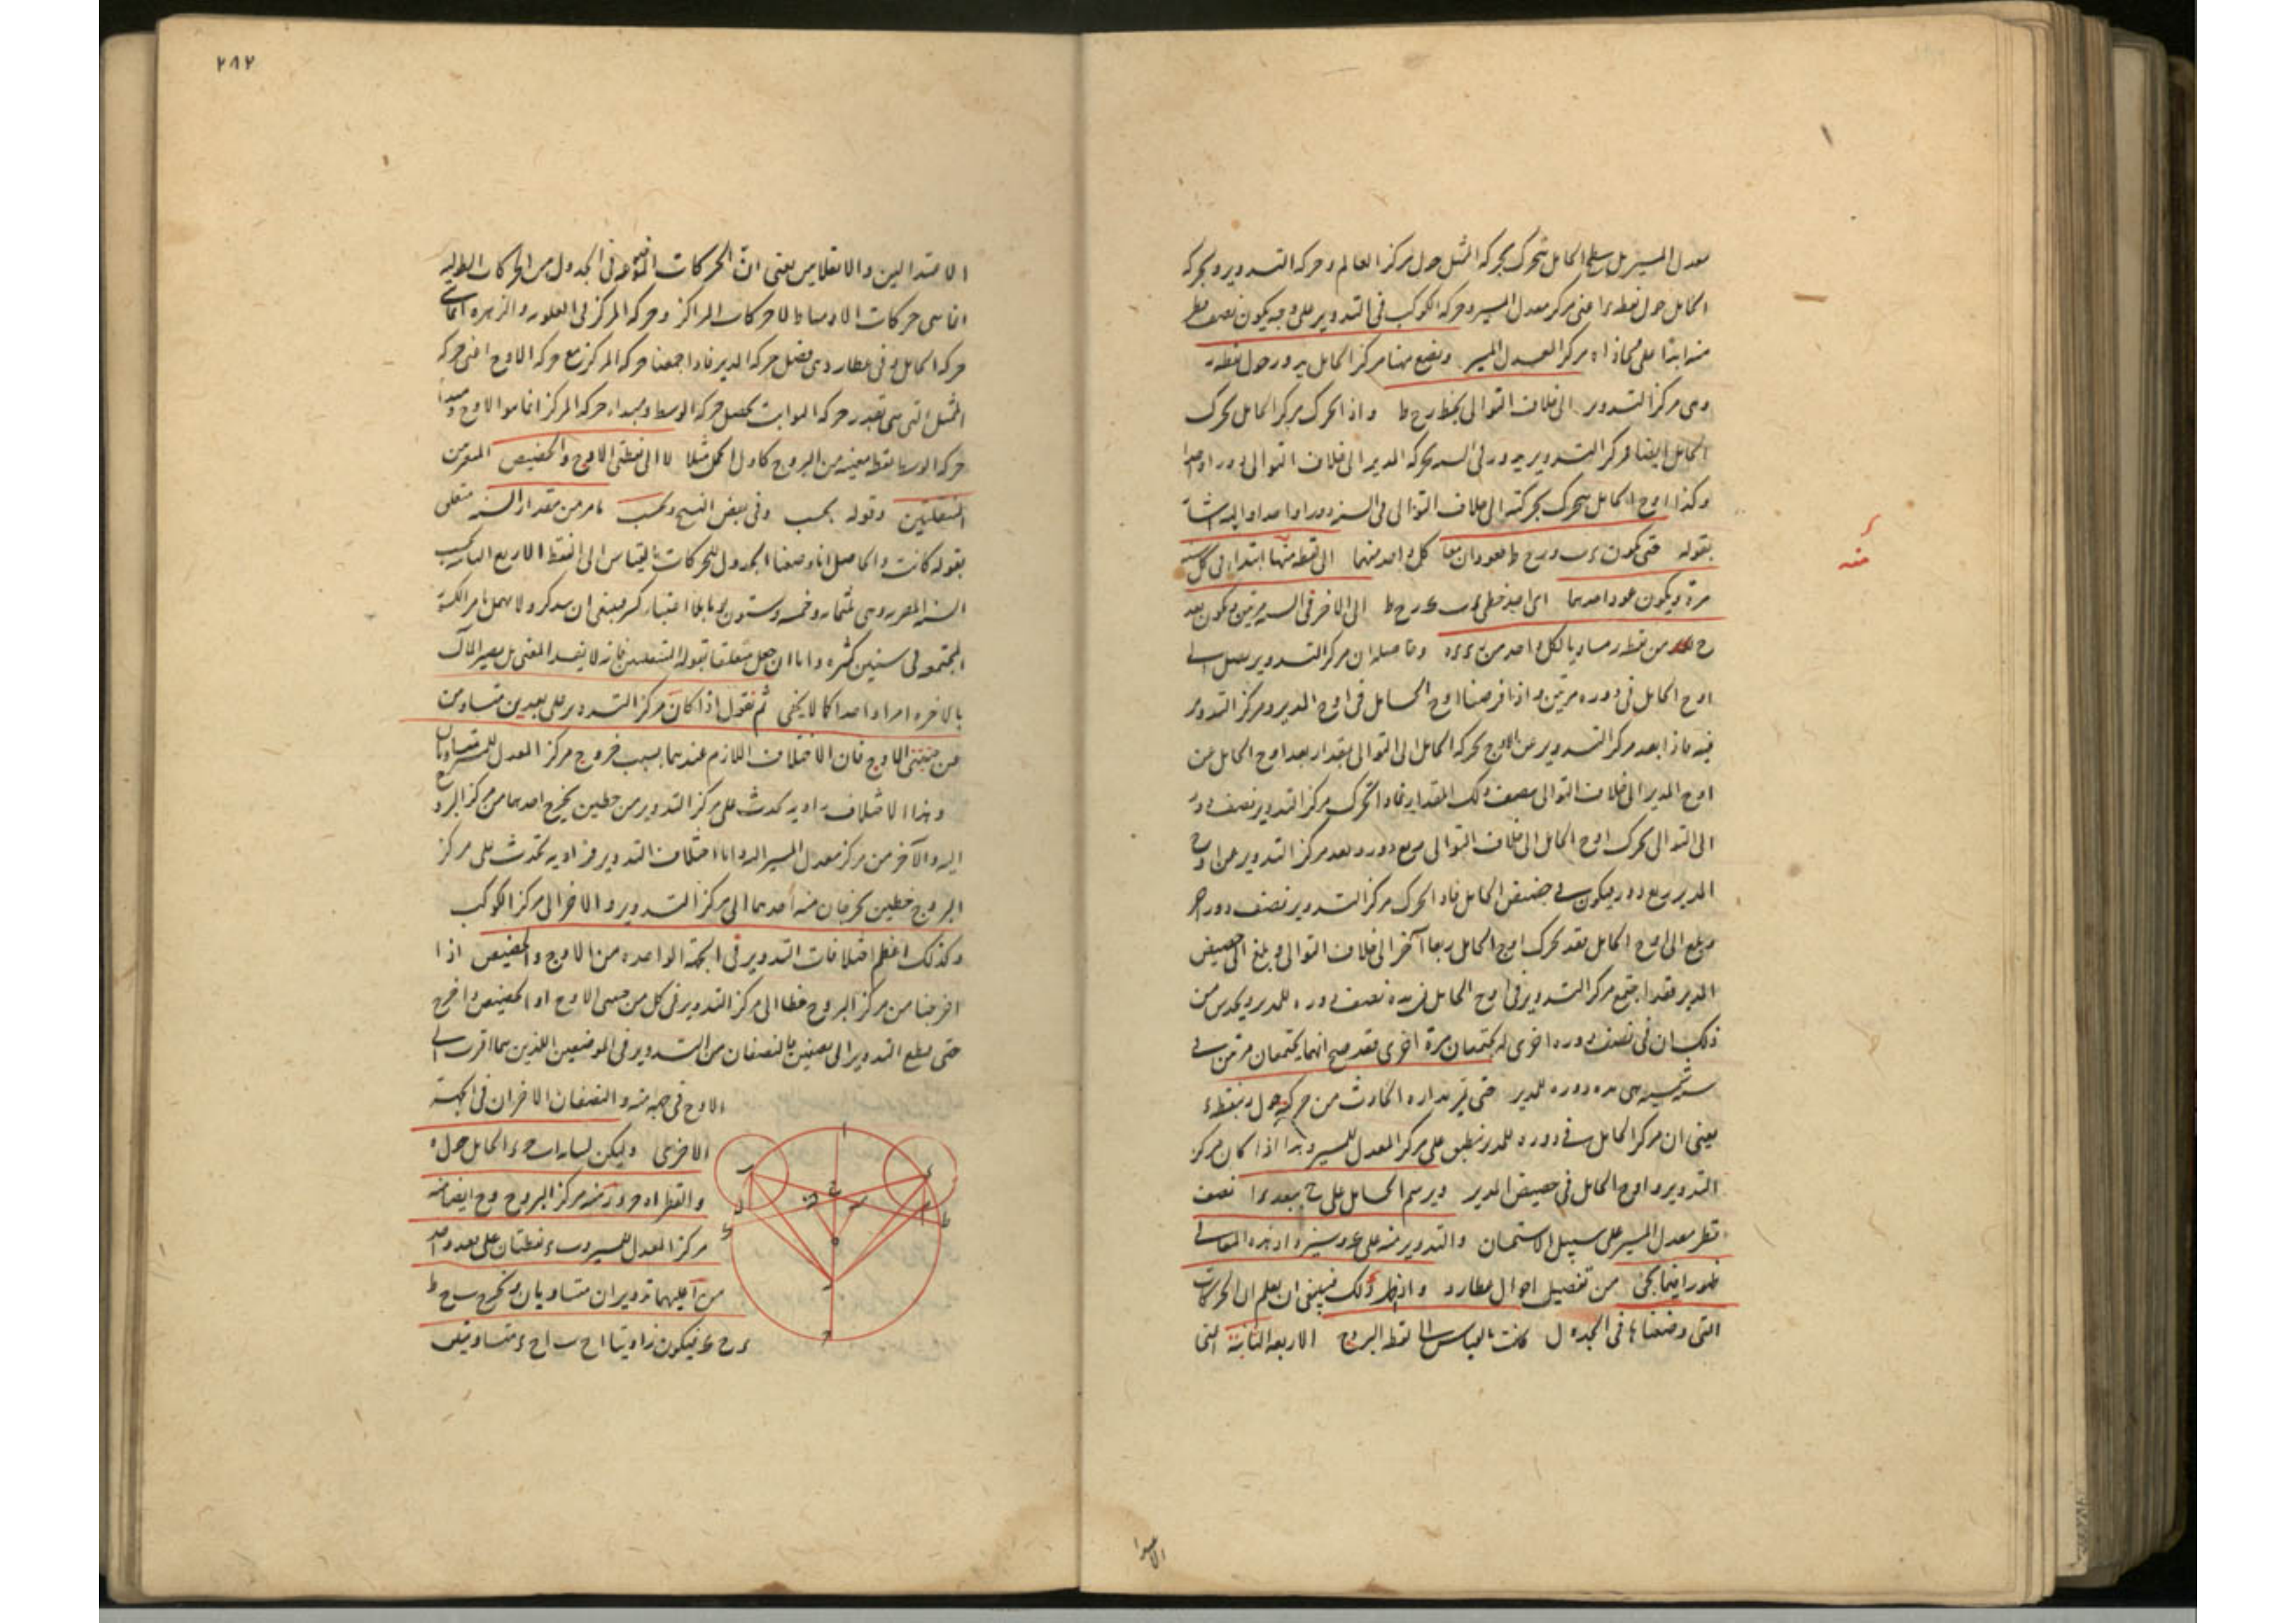 معدل المسير بل سطح الحامل يتحرك بحركة الممثل حول مركز العالم وحركة التدوير وبحركة
الحامل حول نقطة اعنى مركز معدل المسير وحركة الكوكب فى التدوير على وجه يكون نصف قطر
منه ابدا على محاذاة مركز المعدل المسير ونضع مركز الحامل يدور حول نقطة ر
وهى مركز التدوير الى خلاف التوالى بخط ر ح ط واذا تحرك مركز الحامل تحرك
الحامل ايضا فمركز التدوير يدور فى السنة بحركة المدير الى خلاف التوالى دورا واحدا
وكذا اوج الحامل يتحرك بحركته الى خلاف التوالى فى السنة دورا واحدا واليه اشار
بقوله حتى يكون ور ح ط يعودان معا كل واحد منهما الى نقطة منها ابتدا فى كل سنة
مرة ويكون عود احدهما اى احد خطى ر ح ط الى الاخر فى السنة مرتين ويكون بعد
ح من نقطة ر مساويا لكل واحد من وحاصله ان مركز التدوير يصل الى
اوج الحامل فى دوره مرتين واذا فرضنا اوج الحامل فى اوج المدير ومركز التدوير
فيه فاذا بعد مركز التدوير عن الاوج بحركة الحامل الى التوالى بمقدار بعد اوج الحامل عن
اوج المدير الى خلاف التوالى ذلك المقدار فاذا تحرك مركز التدوير نصف دور
الى التوالى تحرك اوج الحامل الى خلاف التوالى ربع دوره وبعد مركز التدوير عن اوج
المدير ربع دور فيكون فى حضيض الحامل فاذا تحرك مركز التدوير نصف دور اخر
وبلغ الى اوج الحامل فقد تحرك اوج الحامل ربعا آخر الى خلاف التوالى وبلغ الى حضيض
المدير فقد اجتمع مركز التدوير فى اوج الحامل فى مدة نصف دوره للمدير ويحدس من
ذلك ان فى نصف دوره اخرى له يجتمعان مرة اخرى فقد صح انهما يجتمعان مرتين فى
سنة شمسية هى مدة دورة للمدير حتى تمر مداره الحادث من حركته حول ر بنقطة
يعنى ان مركز الحامل فى دورة للمدير ينطبق على مركز المعدل للمسير وهذا اذا كان مركز
التدوير واوج الحامل فى حضيض المدير ويرسم الحامل على ح ببعد نصف
قطر معدل المسير على سبيل الاستحسان والتدوير منه على وسيزداد هذه المعانى
ظهورا فيما يجئ من تفصيل احوال عطارد واذ ذلك فينبغى ان يعلم ان الحركات
التى وضعناها فى الجدول كانت بالقياس الى نقط البروج الاربعة الثابتة التى
منه
الاعتدا
٢٨٢
الاعتدالين والانقلابين يعنى ان الحركات الموضوعة فى الجدول من الحركات الطولية
انما هى حركات الاوساط لا حركات المراكز وحركة المركز فى العلوية والزهرة انما هى
حركة الحامل وفى عطارد هى فضل حركة المدير فاذا جمعنا حركة المركز مع حركة الاوج اعنى حركة
الممثل التى هى بقدر حركة الثوابت تحصل حركة الوسط ومبداء حركة المركز انما هو الاوج ومبدأ
حركة الوسط نقطة معينة من البروج كاول الحمل مثلا لا الى نقطتى الاوج والحضيض المتحركتين
المنتقلتين وقوله بحسب وفى بعض النسخ وبحسب ما مر من مقدار السنة متعلق
بقوله كانت والحاصل انا وضعنا الجدول للحركات بالقياس الى النقط الاربع الثابتة بحسب
السنة المصرية وهى ثلثمائة وخمسة وستون يوما بلا اعتبار كسر فينبغى ان يتذكر ولا يهمل ما مر الكسر
المجتمع فى سنين كثيرة واما ان جعل متعلقا بقوله المنتقلتين فانه لا يفسد المعنى بل يصير المآل
بالاخرة امرا واحدا كما لا يخفى ثم نقول اذا كان مركز التدوير على بعدين متساويين
من جنبتى الاوج فان الاختلاف اللازم عندهما بسبب خروج مركز المعدل للمسير متساويان
وهذا الاختلاف زاوية تحدث على مركز التدوير من خطين يخرج احدهما من مركز البروج
اليه والآخر من مركز معدل المسير اليه واما اختلاف التدوير فزاوية تحدث على مركز
البروج من خطين يخرجان منه احدهما الى مركز التدوير والاخر الى مركز الكوكب
وكذلك اعظم اختلافات التدوير فى الجهة الواحدة من الاوج والحضيض اذا
اخرجنا من مركز البروج خطا الى مركز التدوير فى كل من جنبتى الاوج او الحضيض واخرج
حتى يقطع التدوير الى نصفين فالنصفان من التدوير فى الموضعين اللذين هما اقرب الى
الاوج فى جهة منه والنصفان الاخران فى الجهة
الاخرى وليكن لبيانه ا ب ح د الحامل حول ه
والقطر ا ه ح و ر منه مركز البروج و ح ايضا منه
مركز المعدل للمسير و ب نقطتان على بعد واحد
من ا عليهما تدويران متساويان ونخرج ب ح ط
د ح فيكون زاويتا ا ح ب ا ح د متساويتين